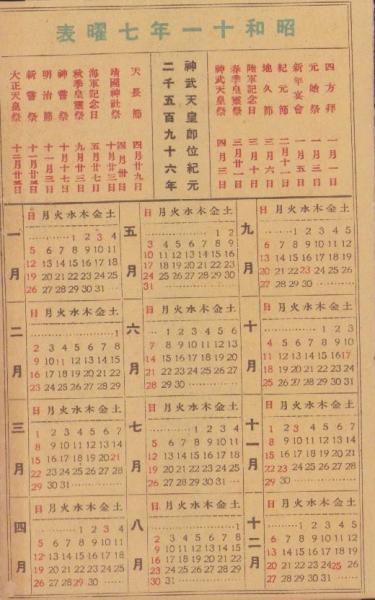 昭和十一年七曜表
四方拝 一月一日
元始祭 一月三日
新年宴會 一月五日
紀元節 二月十一日
地久節 三月六日
陸軍記念日 三月十日
春季皇靈祭 三月廿一日
神武天皇祭 四月三日
神武天皇即位紀元
二千五百九十六年
天長節 四月廿九日
靖國神社祭 四月卅日 十月廿三日
海軍記念日 五月廿七日
秋季皇靈祭 九月廿三日
神嘗祭 十月十七日
明治節 十一月三日
新嘗祭 十一月廿三日
大正天皇祭 十二月廿五日
一月
日月火水木金土
1 2 3 4
5 6 7 8 9 10 11
12 13 14 15 16 17 18
19 20 21 22 23 24 25
26 27 28 29 30 31
二月
日月火水木金土
1
2 3 4 5 6 7 8
9 10 11 12 13 14 15
16 17 18 19 20 21 22
23 24 25 26 27 28 29
三月
日月火水木金土
1 2 3 4 5 6 7
8 9 10 11 12 13 14
15 16 17 18 19 20 21
22 23 24 25 26 27 28
29 30 31
四月
日月火水木金土
1 2 3 4
5 6 7 8 9 10 11
12 13 14 15 16 17 18
19 20 21 22 23 24 25
26 27 28 29 30
五月
日月火水木金土
1 2
3 4 5 6 7 8 9
10 11 12 13 14 15 16
17 18 19 20 21 22 23
24 25 26 27 28 29 30
31
六月
日月火水木金土
1 2 3 4 5 6
7 8 9 10 11 12 13
14 15 16 17 18 19 20
21 22 23 24 25 26 27
28 29 30
七月
日月火水木金土
1 2 3 4
5 6 7 8 9 10 11
12 13 14 15 16 17 18
19 20 21 22 23 24 25
26 27 28 29 30 31
八月
日月火水木金土
1
2 3 4 5 6 7 8
9 10 11 12 13 14 15
16 17 18 19 20 21 22
23 24 25 26 27 28 29
30 31
九月
日月火水木金土
1 2 3 4 5
6 7 8 9 10 11 12
13 14 15 16 17 18 19
20 21 22 23 24 25 26
27 28 29 30
十月
日月火水木金土
1 2 3
4 5 6 7 8 9 10
11 12 13 14 15 16 17
18 19 20 21 22 23 24
25 26 27 28 29 30 31
十一月
日月火水木金土
1 2 3 4 5 6 7
8 9 10 11 12 13 14
15 16 17 18 19 20 21
22 23 24 25 26 27 28
29 30
十二月
日月火水木金土
1 2 3 4 5
6 7 8 9 10 11 12
13 14 15 16 17 18 19
20 21 22 23 24 25 26
27 28 29 30 31